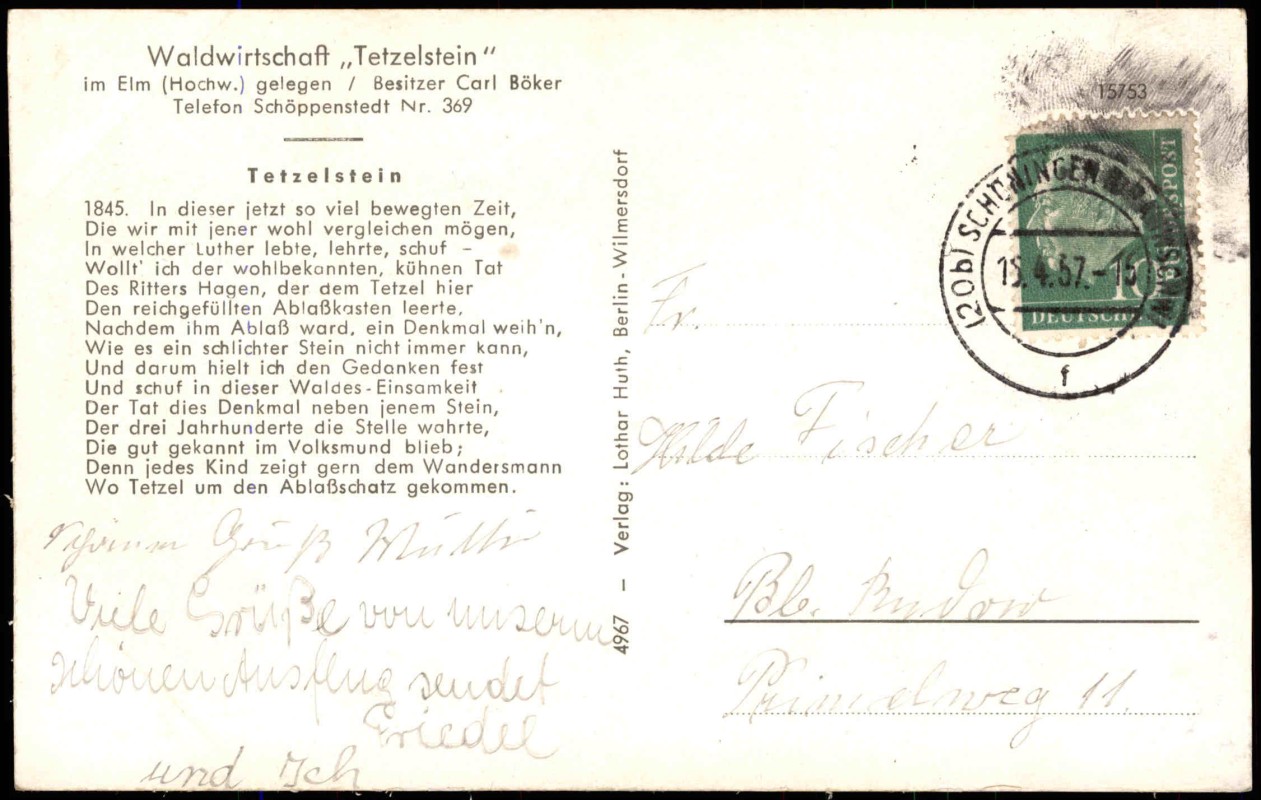 Waldwirtschaft „Tetzelstein“
im Elm (Hochw.) gelegen / Besitzer Carl Böker
Telefon Schöppenstedt Nr. 369
Tetzelstein
1845. In dieser jetzt so viel bewegten Zeit,
Die wir mit jener wohl vergleichen mögen,
In welcher Luther lebte, lehrte, schuf –
Wollt' ich der wohlbekannten, kühnen Tat
Des Ritters Hagen, der dem Tetzel hier
Den reichgefüllten Ablaßkasten leerte,
Nachdem ihm Ablaß ward, ein Denkmal weih'n,
Wie es ein schlichter Stein nicht immer kann,
Und darum hielt ich den Gedanken fest
Und schuf in dieser Waldes-Einsamkeit
Der Tat dies Denkmal neben jenem Stein,
Der drei Jahrhunderte die Stelle wahrte,
Die gut gekannt im Volksmund blieb;
Denn jedes Kind zeigt gern dem Wandersmann
Wo Tetzel um den Ablaßschatz gekommen.
Gruß Mutti
Viele Grüße von unserm
schönen Ausflug sendet
Friedel
und Ich
4967 – Verlag: Lothar Huth, Berlin-Wilmersdorf
15753
(20b) SCHÖNINGEN
15.4.57.-16
f
10
DEUTSCHE
BUNDESPOST
Fr.
Hilde Fischer
Bln. Rudow
Primelweg 11.